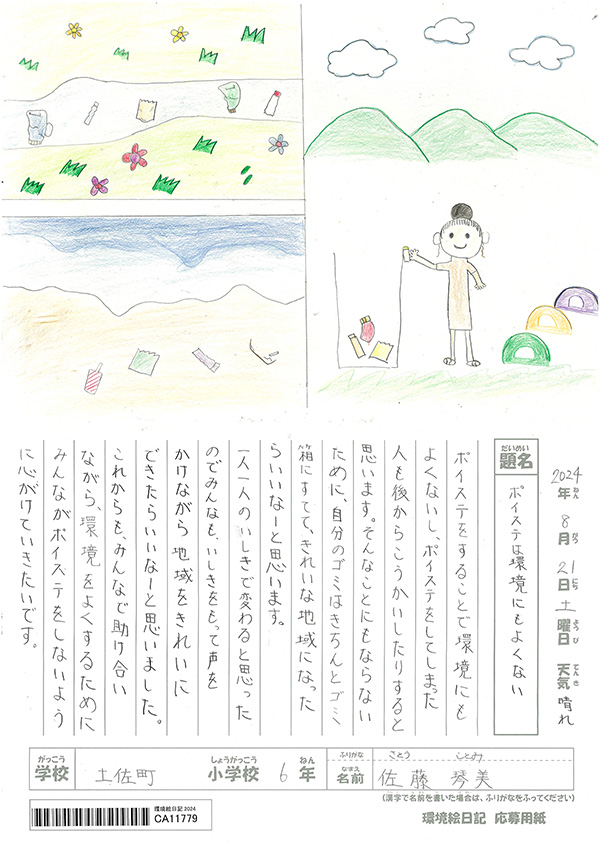 2024年ねん 8月がつ 21日にち 土曜日ようび 天気てんき 晴れ
だいめい
題名
ポイステは環境にもよくない
ポイステをすることで環境にも
よくないし、ポイステをしてしまった
人も後からこうかいしたりすると
思います。そんなことにもならない
ために、自分のゴミはきちんとゴミ
箱にすてて、きれいな地域になった
らいいなーと思います。
一人一人のいしきで変わると思った
のでみんなも、いしきをもって声を
かけながら地域をきれいに
できたらいいなーと思いました。
これからも、みんなで助け合い
ながら、環境をよくするために
みんながポイステをしないよう
に心がけていきたいです。
がっこう しょうがっこう ねん ふりがな さとう ことみ
学校 土佐町 小学校 6年 なまえ 名前 佐藤 琴美
(漢字で名前を書いた場合は、ふりがなをふってください)
環境絵日記2024
CA11779
環境絵日記 応募用紙